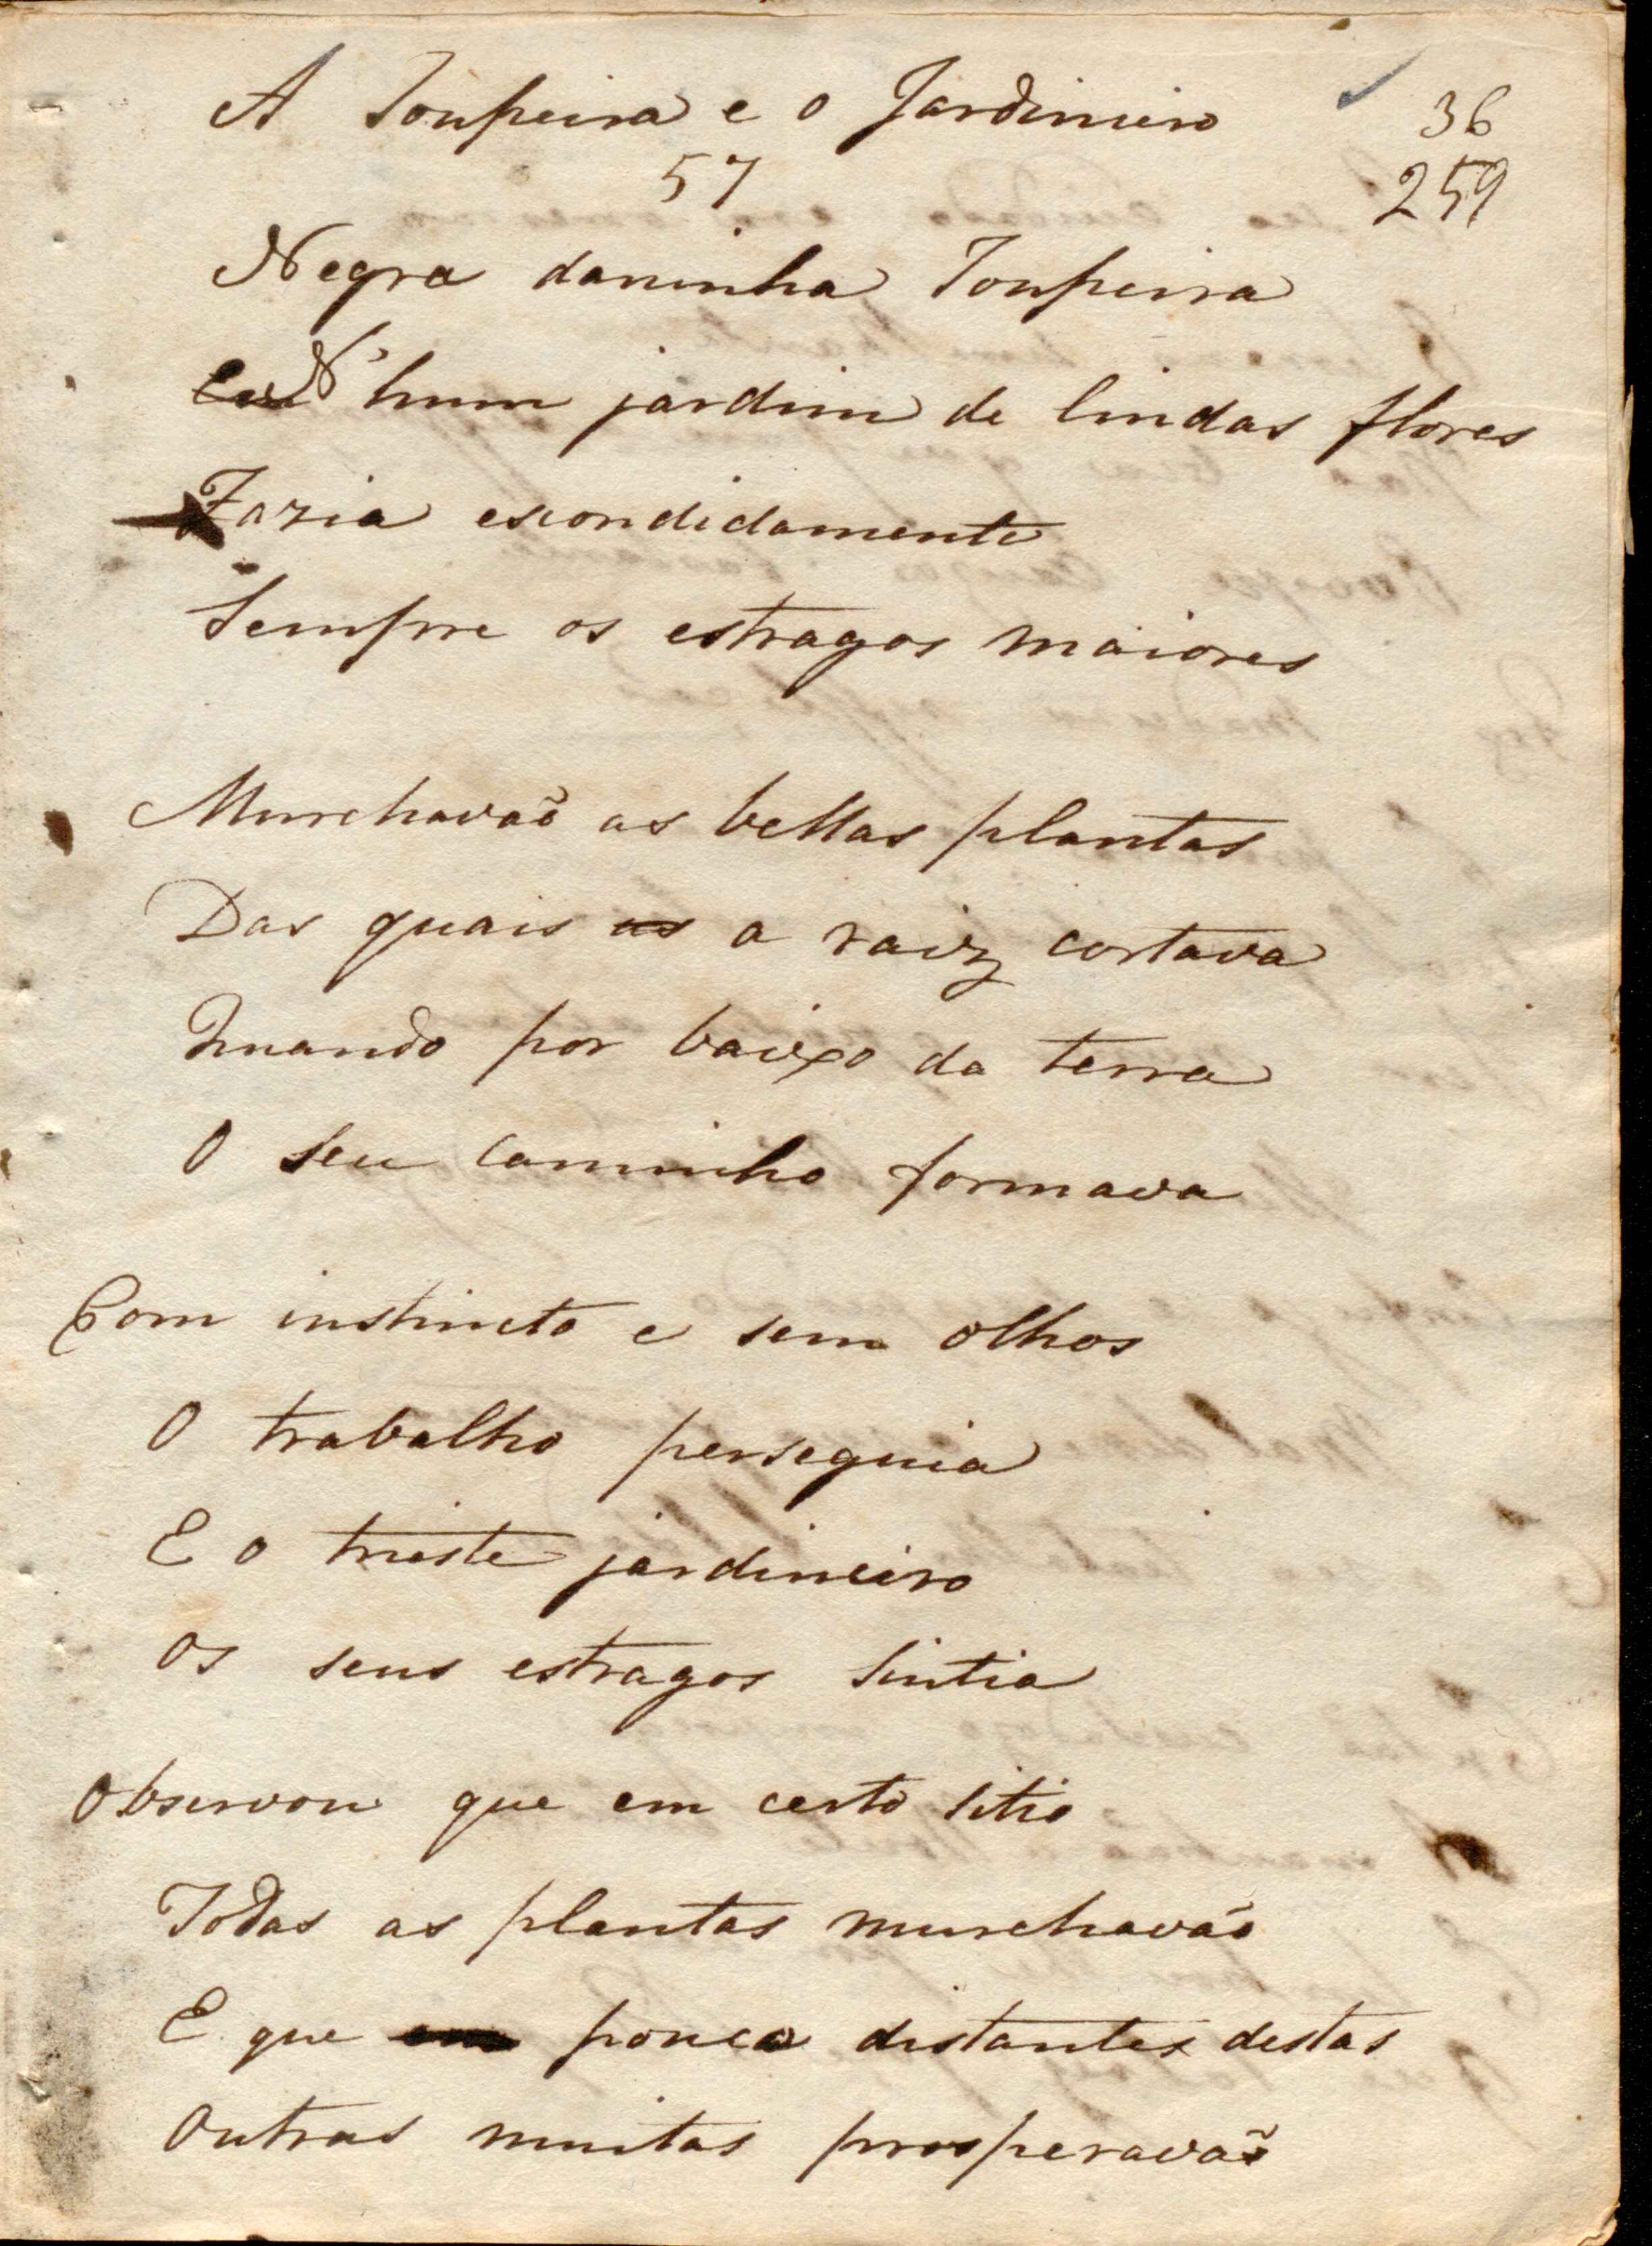 A Toupeira e o Jardineiro
36
57
259
Negra daninha Toupeira
N'hum jardim de lindas flores
Fazia escondidamente
Sempre os estragos maiores
Murchavaõ as bellas plantas
Das quais as a raiz cortava
Quando por baixo da terra
O seu caminho formava
Com instincto e sem olhos
O trabalho perseguia
E o triste jardineiro
Os seus estragos sintia
Observou que em certo sitio
Todas as plantas murchavaõ
E que em pouco distantes destas
Outras muitas prosperavaõ